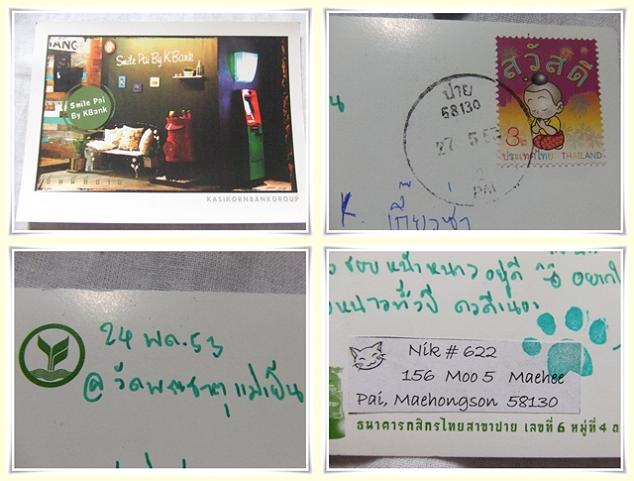 Smile Pai By KBank
Smile Pai
By KBank
KASIKORNBANKGROUP
สวัสดี
3
ประเทศไทย THAILAND
ปาย
58130
27 5 53
PAI
K. เกี๊ยวซ่า
24 พค. 53
@ วัดพระธาตุแม่เย็น
ชอบหน้าหนาวอยู่ดี
Nik # 622
156 Moo 5 Maehee
Pai, Maehongson 58130
ธนาคารกสิกรไทยสาขาปาย เลขที่ 6 หมู่ที่ 4 ถ